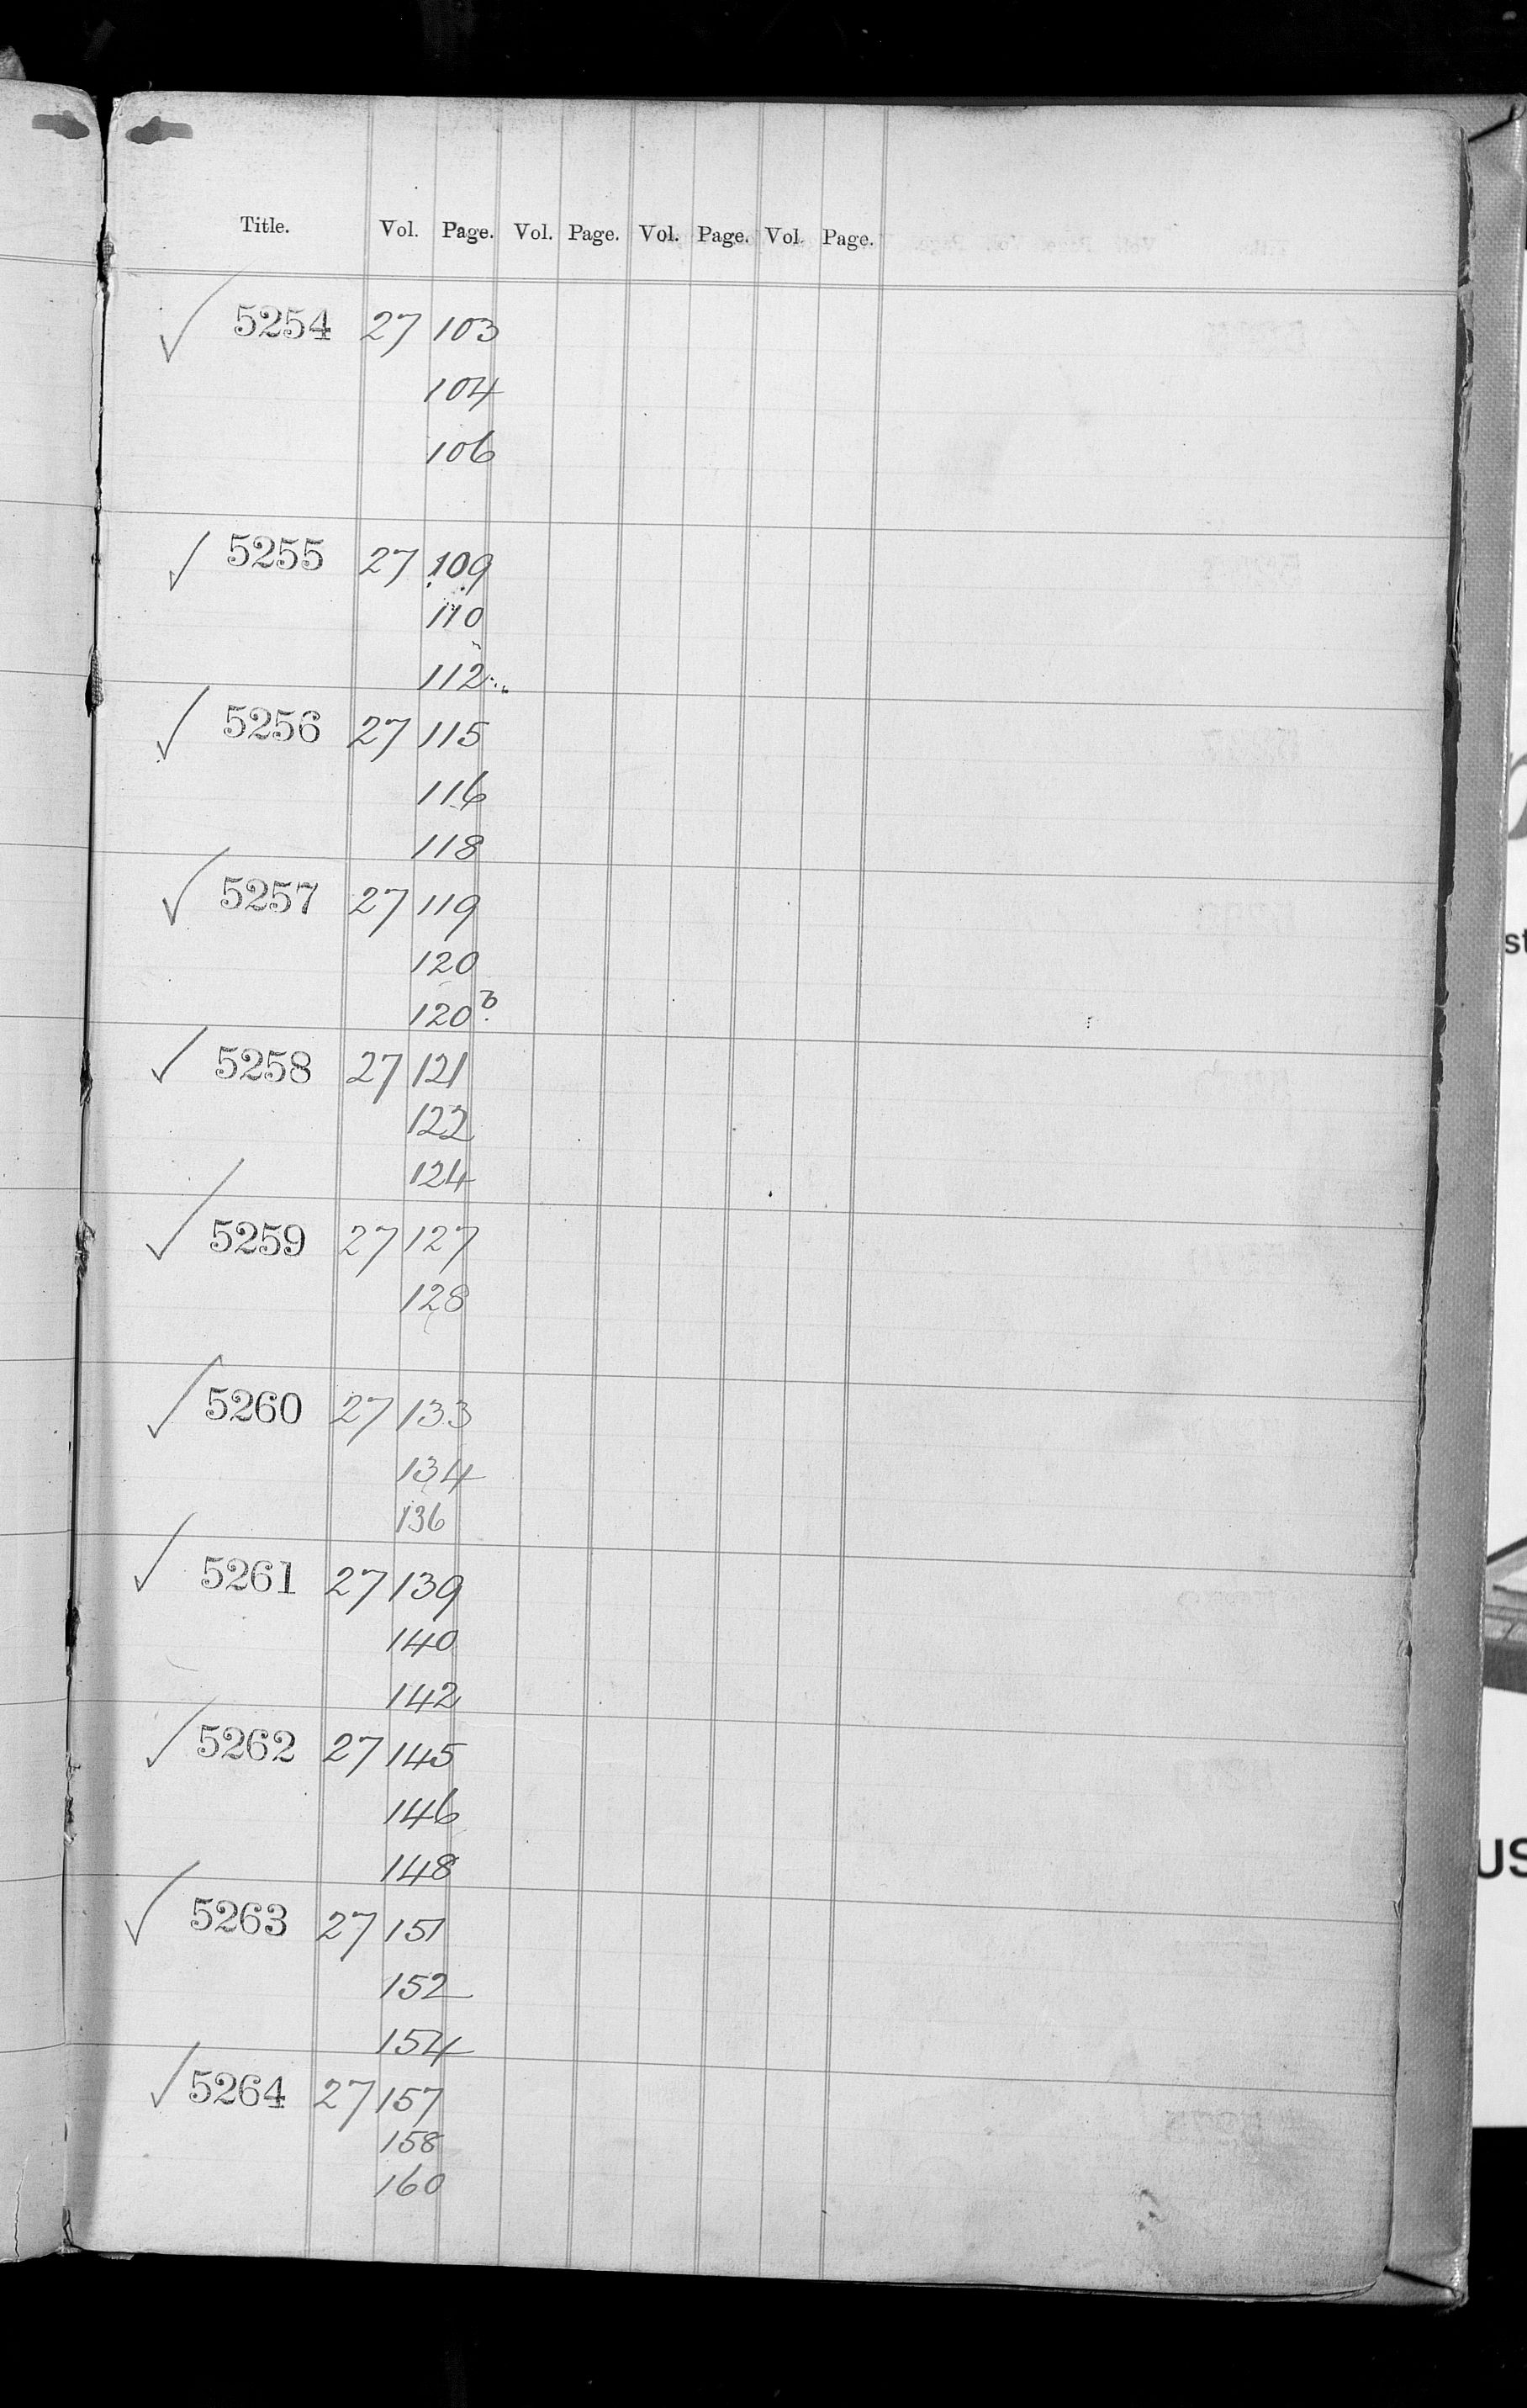 Title. Vol. Page. Vol. Page. Vol. Page. Vol. Page.
✓ 5254 27 103
104
106
✓ 5255 27 109
110
112
✓ 5256 27 115
116
118
✓ 5257 27 119
120
120b
✓ 5258 27 121
122
124
✓ 5259 27 127
128
✓ 5260 27 133
134
136
✓ 5261 27 139
140
142
✓ 5262 27 145
146
148
✓ 5263 27 151
152
154
✓ 5264 27 157
158
160